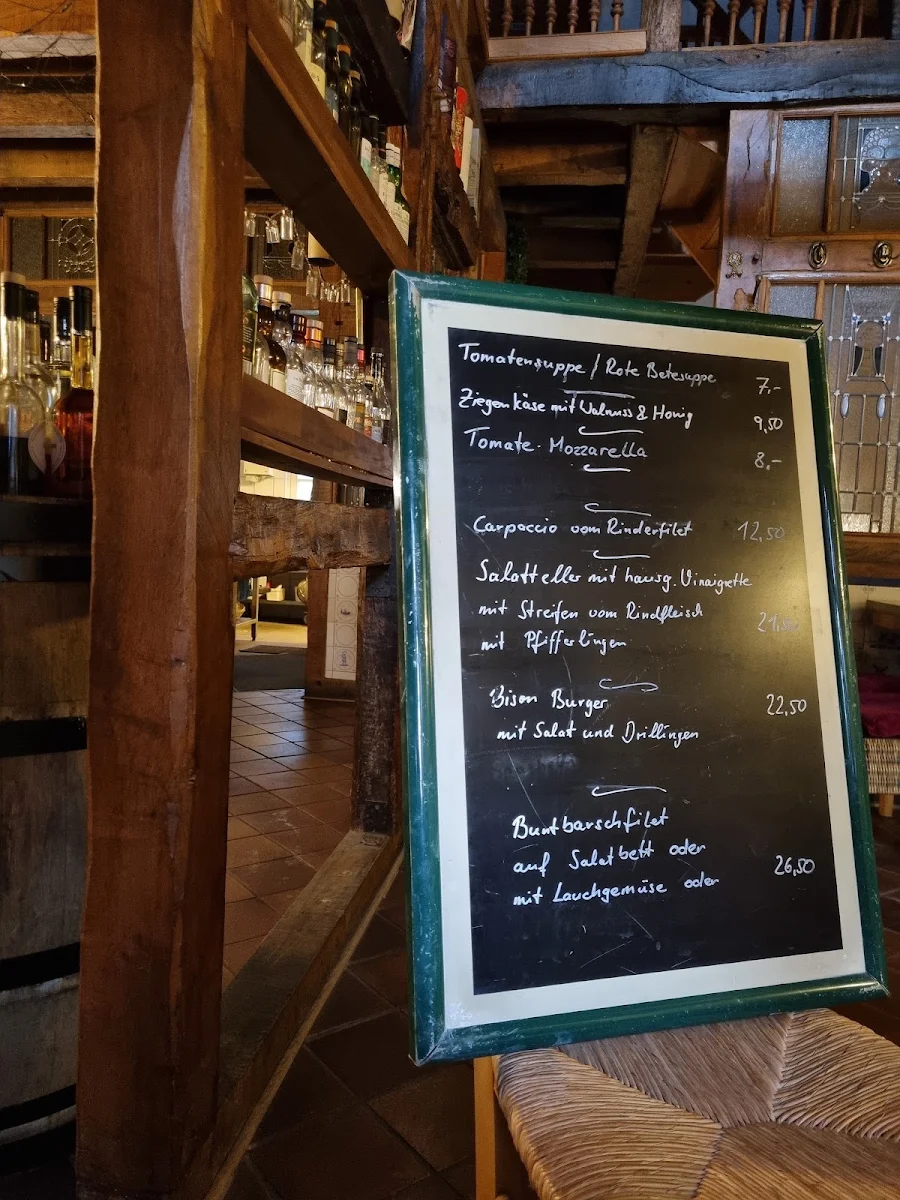 Tomatensuppe / Rote Betesuppe 7,-
Ziegenkäse mit Walnuss & Honig 9,50
Tomate-Mozzarella 8,-
Carpaccio vom Rinderfilet 12,50
Salatteller mit hausg. Vinaigrette
mit Streifen vom Rindfleisch
mit Pfifferlingen
Bison Burger 22,50
mit Salat und Drillingen
Buntbarschfilet
auf Salatbett oder
mit Lauchgemüse oder 26,50